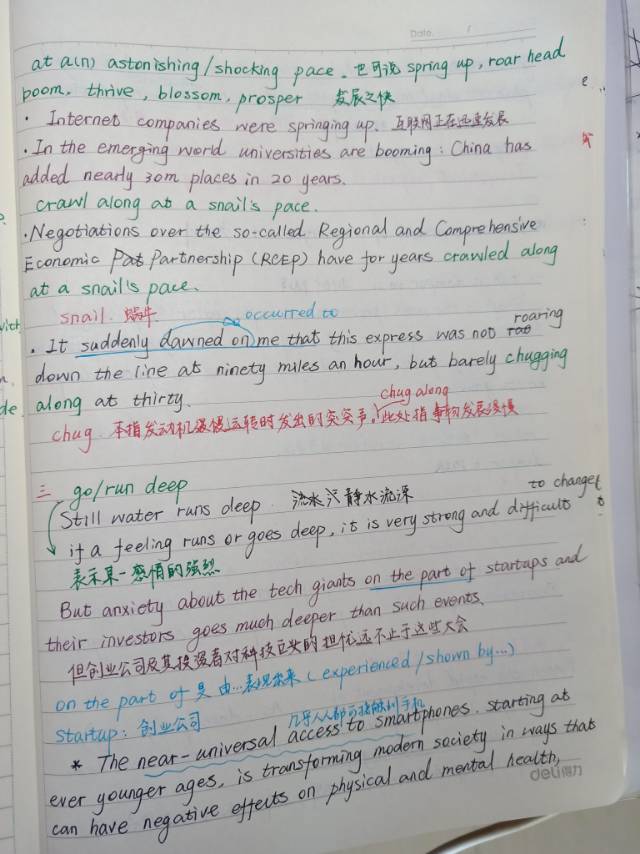 Date. /
at a(n) astonishing/shocking pace. 也可说 spring up, roar head
boom, thrive, blossom, prosper 发展之快
· Internet companies were springing up. 互联网正在迅速发展
· In the emerging world universities are booming: China has
added nearly 30m places in 20 years.
crawl along at a snail's pace.
· Negotiations over the so-called Regional and Comprehensive
Economic Partnership (RCEP) have for years crawled along
at a snail's pace.
snail. 蜗牛
occurred to
· It suddenly dawned on me that this express was not roaring
down the line at ninety miles an hour, but barely chugging
along at thirty.
chug along
chug 本指发动机缓慢运转时发出的突突声, 此处指事物发展缓慢
三 go/run deep
Still water runs deep 流水 静水流深
if a feeling runs or goes deep, it is very strong and difficult to change
表示某一感情的强烈
But anxiety about the tech giants on the part of startups and
their investors goes much deeper than such events.
但创业公司及其投资者对科技巨头的担忧远不止于这些大会
on the part of 是 由...表现出来 (experienced/shown by...)
startup: 创业公司 几乎人人都可接触到手机
* The near-universal access to smartphones, starting at
ever younger ages, is transforming modern society in ways that
can have negative effects on physical and mental health,
deli得力
with
de